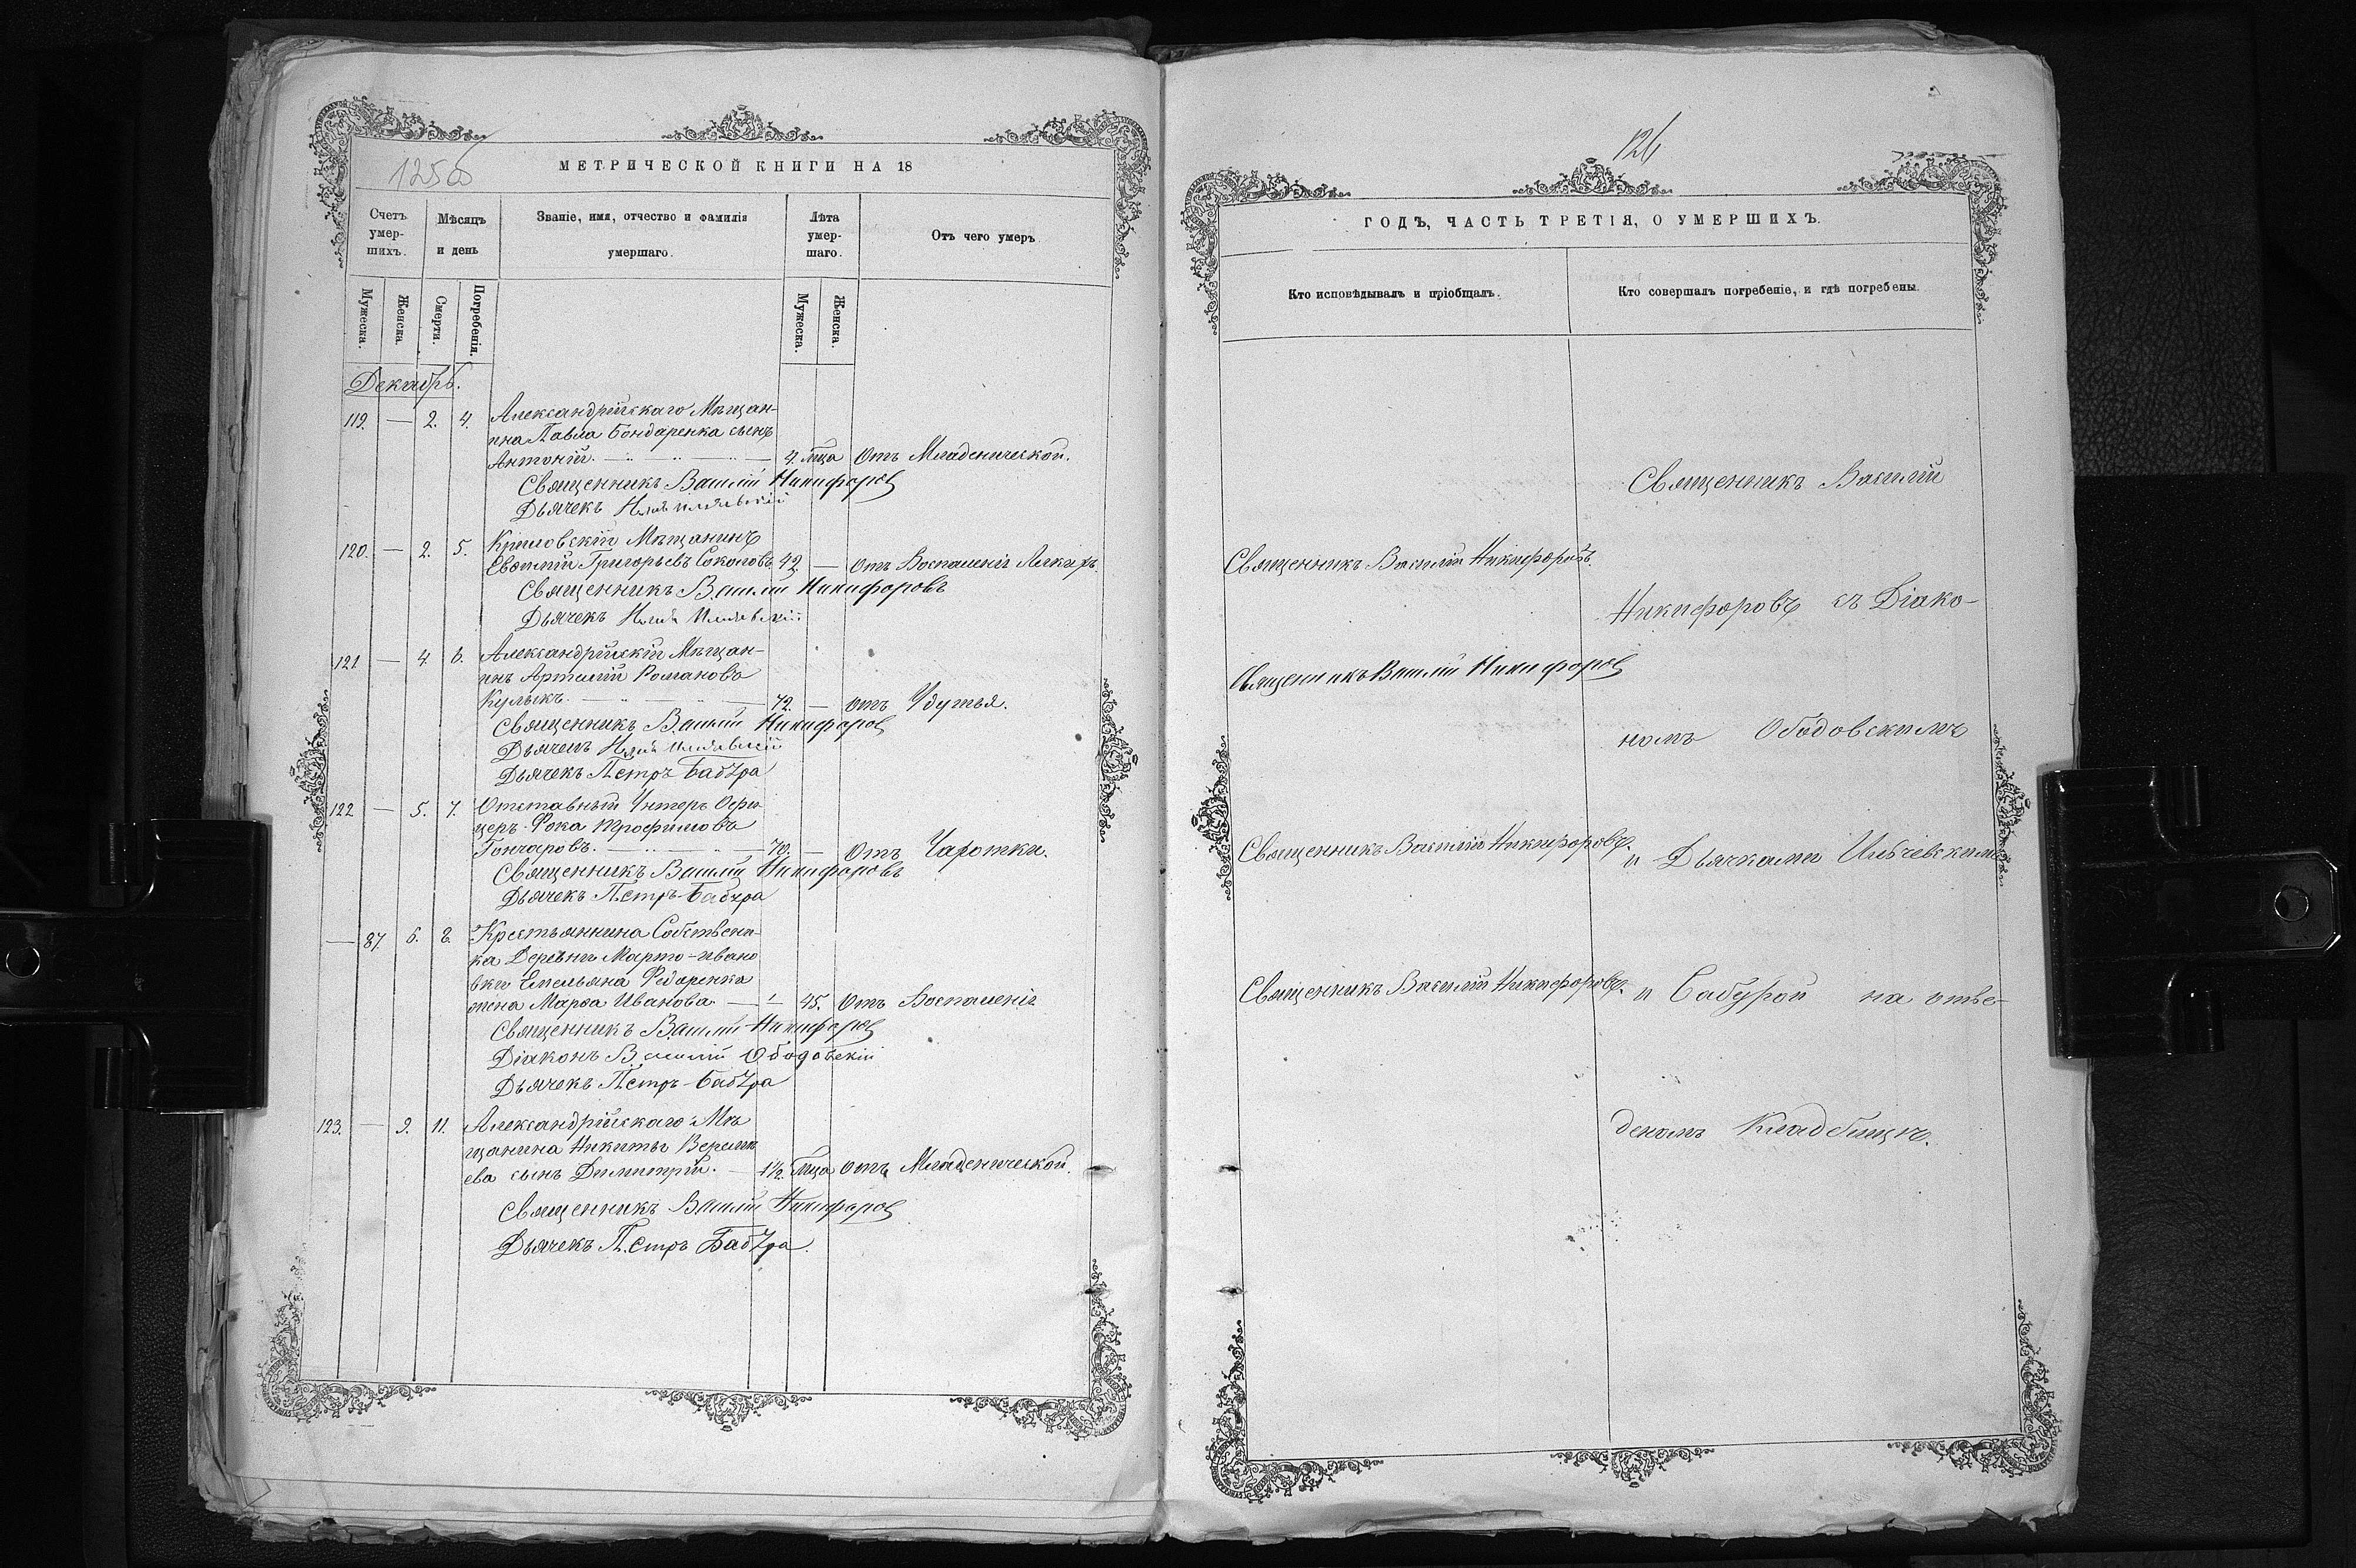 125об
МЕТРИЧЕСКОЙ КНИГИ НА 18
Счетъ умер-шихъ.
Мѣсяцъ и день
Званіе, имя, отчество и фамилія умершаго.
Лѣта умер-шаго.
Отъ чего умеръ
Мужеска.
Женска.
Смерти.
Погребенія.
Мужеска.
Женска.
Декабрь.
119. — 2. 4. Александрійскаго Мѣщан-
ина Павла Бондаренка сынъ
Антоній. — 4. м̃ца Отъ Младенческой.
Священникъ Василій Никифоровъ
Дьячекъ
120. — 2. 5. Крыловскій Мѣщанинъ
Евѳимій Григорьевъ Соколовъ 42. — отъ Воспаленія Легкихъ.
Священникъ Василій Никифоровъ
Дьячекъ
121 — 4. 6. Александрійскій Мѣщан-
инъ Артемій Романовъ
Кулыкъ. — 72. — отъ Удушья.
Священникъ Василій Никифоровъ
Дьячекъ
Дьячекъ Петръ Бабура
122 — 5. 7. Отставный Унтеръ Офи-
церъ Фока Трофимовъ
Гончаровъ. — 70. — Отъ Чахотки.
Священникъ Василій Никифоровъ
Дьячекъ Петръ Бабура
— 87. 6. 8. Крестьянина Собствени-
ка Деревни Марто-Ивано
вки Емельяна Федоренка
жена Марѳа Иванова — 45. Отъ Воспаленія
Священникъ Василій Никифоровъ
Діаконъ Василій Ободовскій
Дьячекъ Петръ Бабура
123. — 9. 11. Александрійскаго Мѣ
щанина Никиты
ева сынъ Димитрій. — 1½. м̃ца отъ Младенческой.
Священникъ Василій Никифоровъ
Дьячекъ Петръ Бабура.
126
ГОДЪ, ЧАСТЬ ТРЕТІЯ, О УМЕРШИХЪ.
Кто исповѣдывалъ и пріобщалъ.
Кто совершалъ погребеніе, и гдѣ погребены.
Священникъ Василій
Священникъ Василій Никифоровъ.
Никифоровъ съ Діако-
Священникъ Василій Никифоровъ
номъ Ободовскимъ
Священникъ Василій Никифоровъ.
и Дьячками
Священникъ Василій Никифоровъ.
и Бабурой на отве-
деномъ Кладбищѣ.